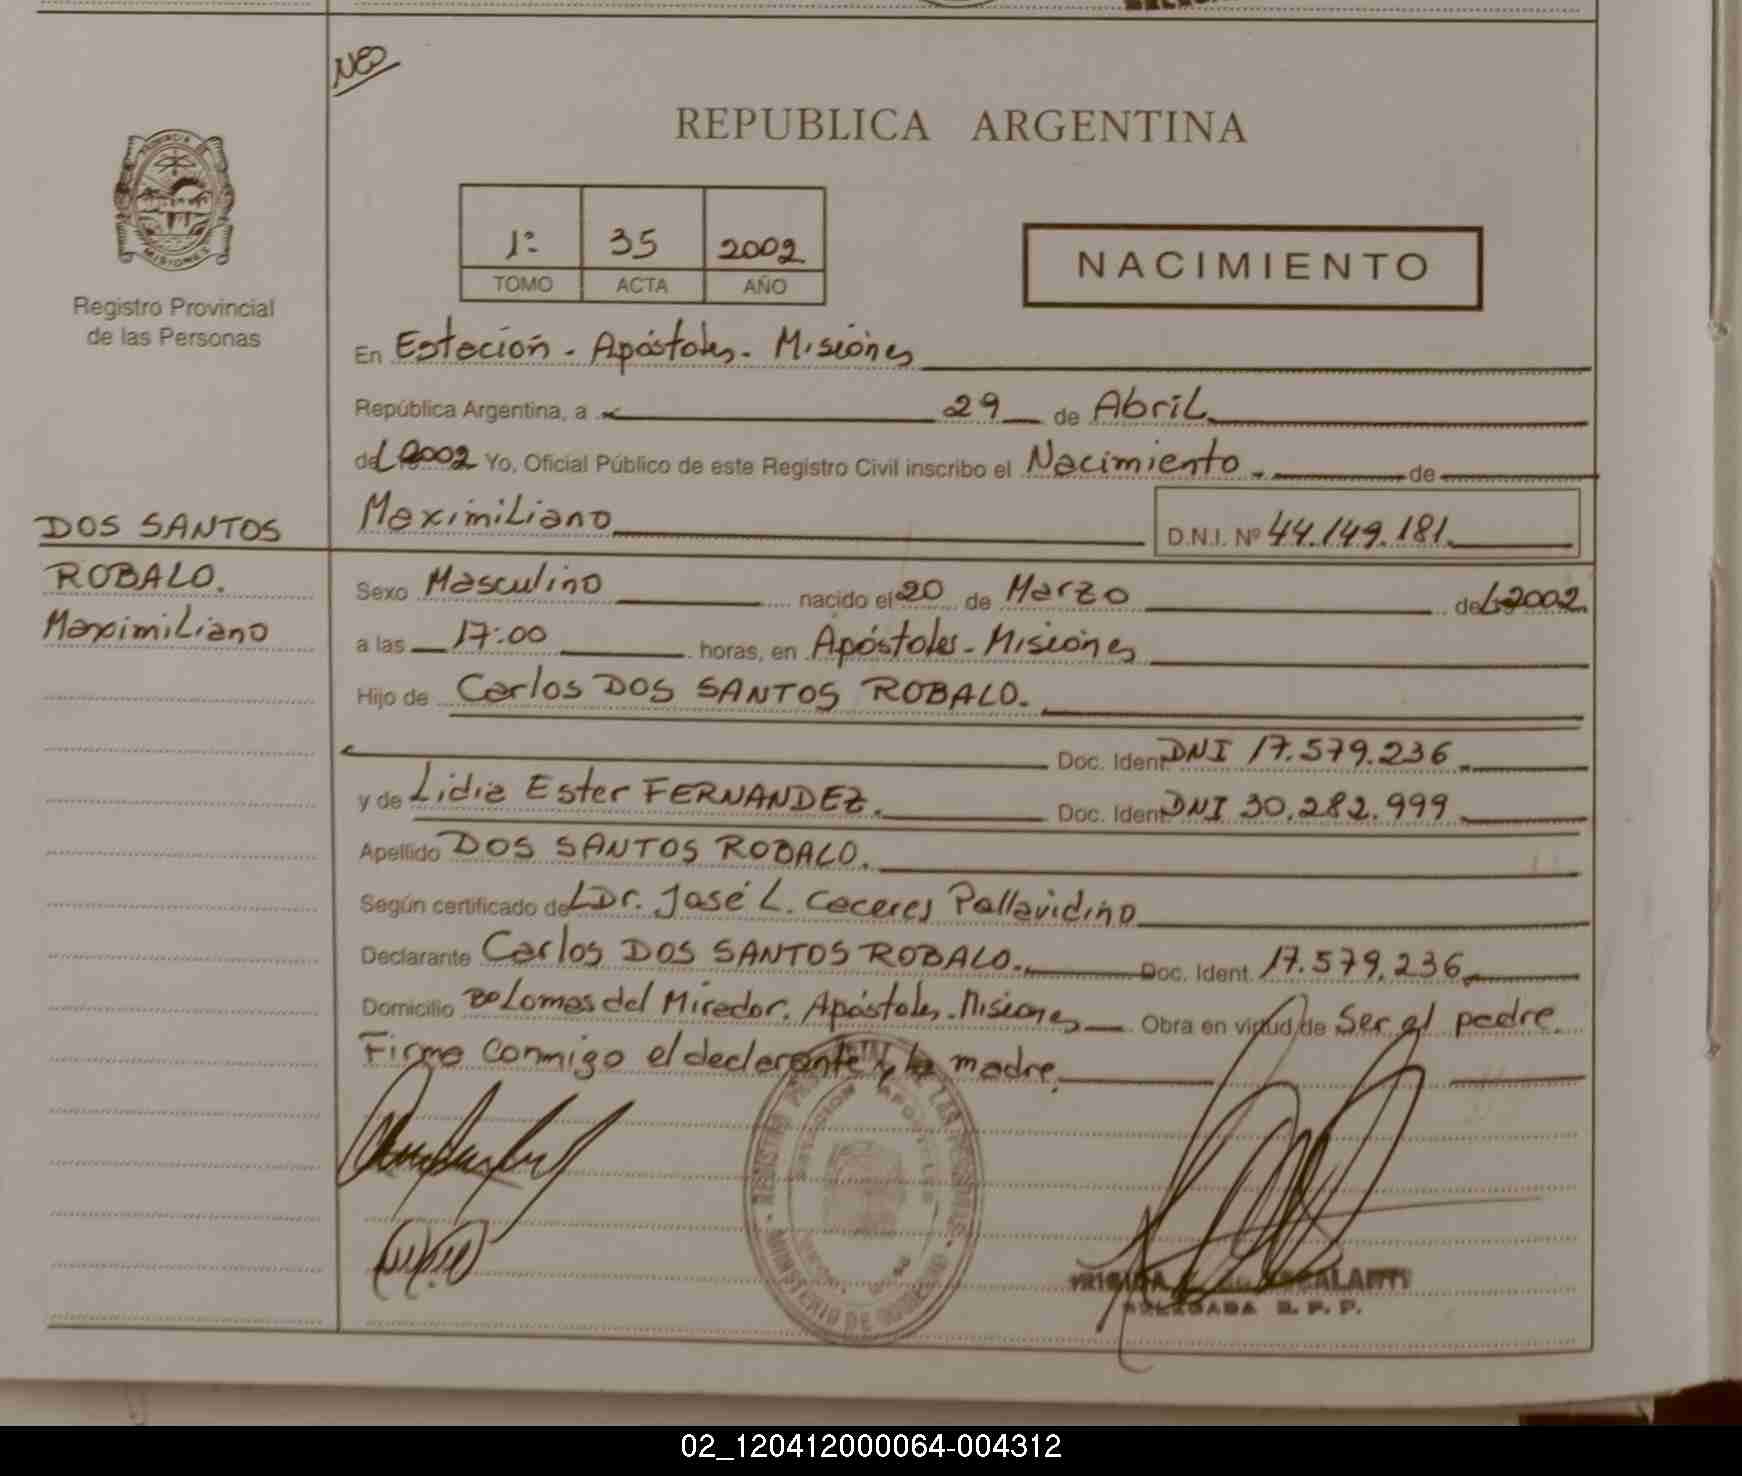 NEO
REPUBLICA ARGENTINA
PROVINCIA DE
MISIONES
Registro Provincial
de las Personas
1º 35 2002
TOMO ACTA AÑO
NACIMIENTO
En Estación - Apóstoles - Misiones
República Argentina, a 29 de Abril
del 2002 Yo, Oficial Público de este Registro Civil inscribo el Nacimiento. de
Maximiliano D.N.I. Nº 44.149.181.
DOS SANTOS
ROBALO.
Maximiliano
Sexo Masculino nacido el 20 de Marzo del 2002
a las 17:00 horas, en Apóstoles - Misiones
Hijo de Carlos DOS SANTOS ROBALO.
Doc. Ident. DNI 17.579.236
y de Lidia Ester FERNANDEZ. Doc. Ident. DNI 30.282.999
Apellido DOS SANTOS ROBALO.
Según certificado del Dr. José L. Caceres Pallavidino
Declarante Carlos DOS SANTOS ROBALO. Doc. Ident. 17.579.236
Domicilio Bº Lomas del Mirador. Apóstoles - Misiones Obra en virtud de Ser el padre.
Firma conmigo el declarante y la madre.
MINISTERIO DE GOBIERNO
ESTACION APOSTOLES
DELEGADA R. P. P.
02_120412000064-004312